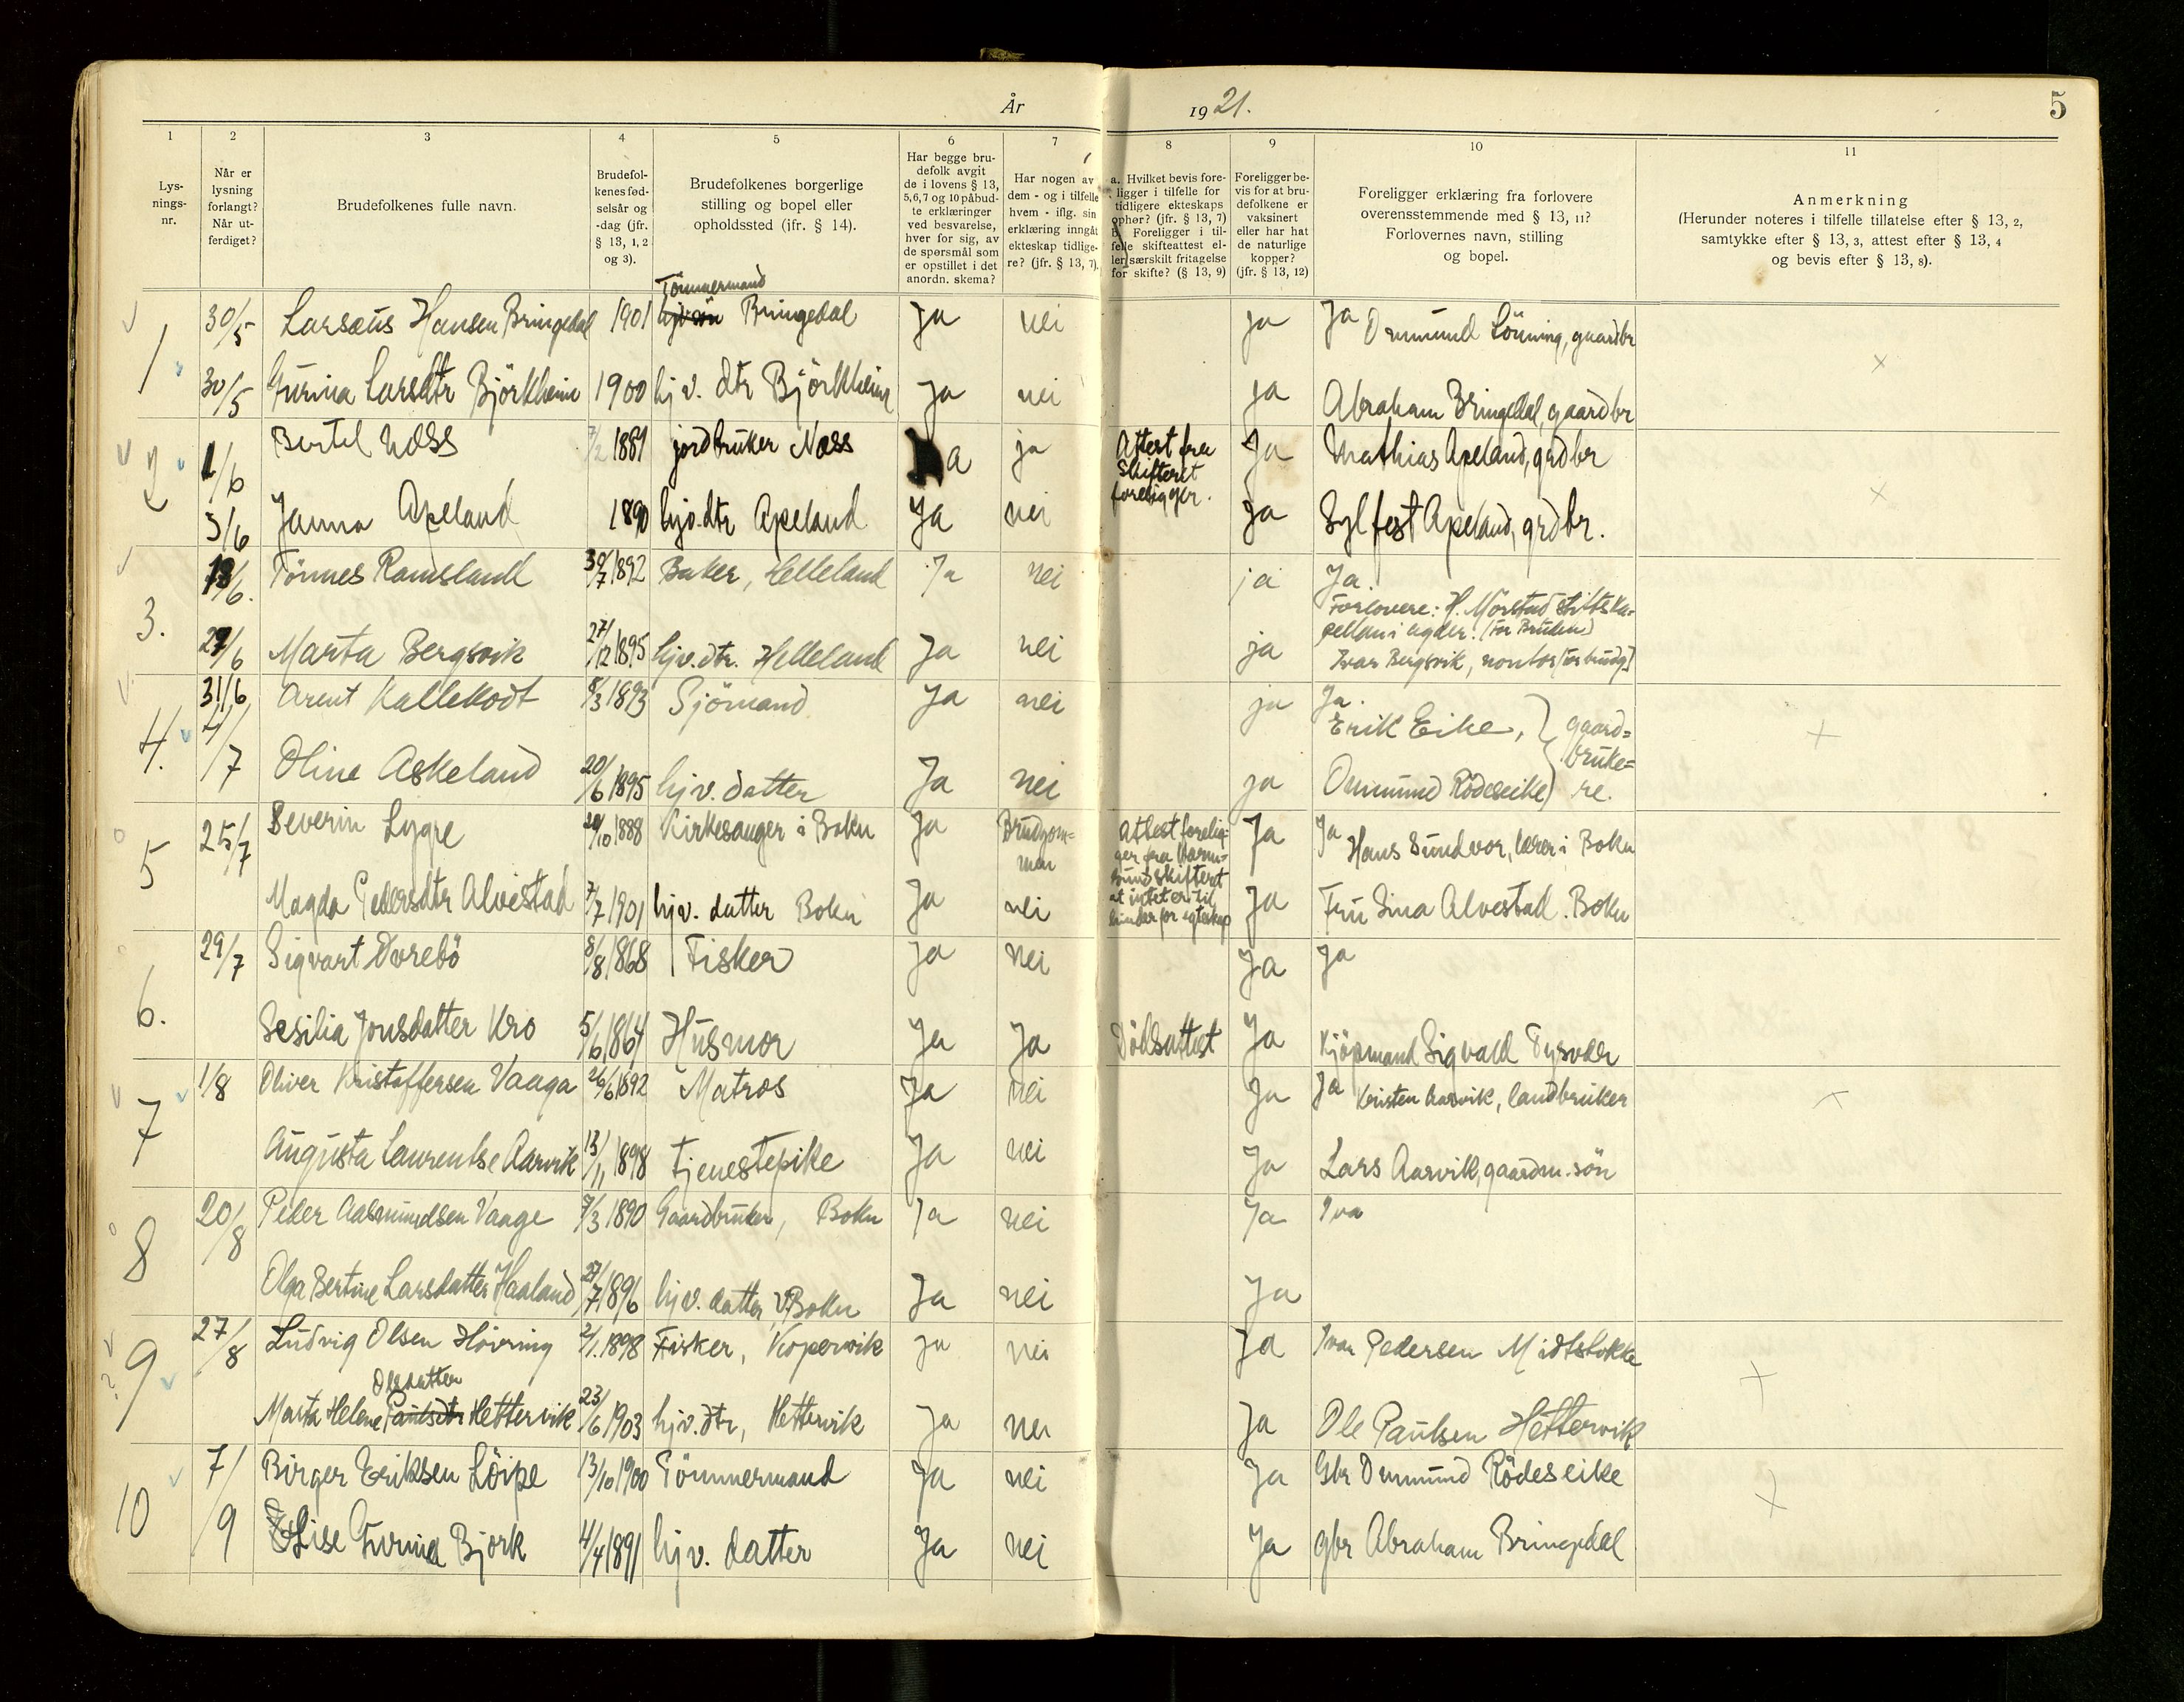 År 1921.
5
1 2 3 4 5 6 7 8 9 10 11
Lys-
nings-
nr.
Når er
lysning
forlangt?
Når ut-
ferdiget?
Brudefolkenes fulle navn.
Brudefol-
kenes fød-
selsår og
-dag (jfr.
§ 13, 1, 2
og 3).
Brudefolkenes borgerlige
stilling og bopel eller
opholdssted (ifr. § 14).
Har begge bru-
defolk avgit
de i lovens § 13,
5,6,7 og 10 påbud-
te erklæringer
ved besvarelse,
hver for sig, av
de spørsmål som
er opstillet i det
anordn. skema?
Har nogen av
dem - og i tilfelle
hvem - iflg. sin
erklæring inngåt
ekteskap tidlige-
re? (jfr. § 13, 7).
a. Hvilket bevis fore-
ligger i tilfelle for
tidligere ekteskaps
ophør? (jfr. § 13, 7)
b. Foreligger i til-
felle skifteattest el-
ler særskilt fritagelse
for skifte? (§ 13, 9)
Foreligger be-
vis for at bru-
defolkene er
vaksinert
eller har hat
de naturlige
kopper?
(jfr. § 13, 12)
Foreligger erklæring fra forlovere
overensstemmende med § 13, 11?
Forlovernes navn, stilling
og bopel.
Anmerkning
(Herunder noteres i tilfelle tillatelse efter § 13, 2,
samtykke efter § 13, 3, attest efter § 13, 4
og bevis efter § 13, 8).
Tömmermand
1 30/5 Larsæus Hansen Bringedal 1901 Bringedal Ja nei ja Ja Ommund Lönning, gaardbr
30/5 Gurina Larsdtr Björkheim 1900 hjv. dtr Björkheim Ja nei ja Abraham Bringedal, gaardbr
2 1/6 Bertel Næss 7/2 1881 jordbruker Næss Ja ja Attest fra Ja Mathias Apeland, grdbr
Skifteret
foreligger.
3/6 Janna Apeland 1890 hjv.dtr Apeland Ja nei Ja Sylfest Apeland, grdbr.
3. 18/6. Tönnes Ramsland 30/7 1892 Baker, Helleland Ja nei ja Ja.
Forlovere: H. Mörstad stiftska-
pellan i Agder. (for Bruden)
29/6 Marta Bergsvik 27/12 1895 hjv.dtr. Helleland Ja nei ja Ivar Bergsvik, kontor [for brudg]
4. 31/6 Arent Kallekodt 8/3 1893 Sjömand Ja nei ja Ja.
4/7 Erik Eike, gaard=
bruke=
Oline Askeland 20/6 1895 hjv. datter Ja nei ja Ommund Rödeseike re.
5 25/7 Severin Lygre 20/10 1888 Kirkesanger i Bokn Ja Brudgom=
men
Attest forelig-
ger fra Karm-
sund skifteret
at intet er til
hinder for egteskap
Ja Ja Hans Sundvor, lærer i Bokn
Magda Pedersdtr Alvestad 7/7 1901 hjv. datter Bokn Ja nei Ja Fru Sina Alvestad. Bokn
6. 29/7 Sigvart Ovrebö 8/8 1868 Fisker Ja nei Ja Ja
Sesilia Jonsdatter Kro 5/6 1864 Husmor Ja Ja Dödsattest Ja Kjöpmand Sigvald Tysvær
7 1/8 Oliver Kristoffersen Vaaga 26/6 1892 Matros Ja nei Ja Ja Kristen Aarvik, landbruker
Augusta Laurentse Aarvik 13/11 1898 tjenestepike Ja nei Ja Lars Aarvik, gaardm.sön
8 20/8 Peder Aasmundsen Vaage 7/3 1890 Gaardbruker, Bokn Ja nei Ja
Olga Bertine Larsdatter Haaland 27/7 1896 hjv. datter, V Bokn Ja nei Ja
9 27/8 Ludvig Olsen Hövring 2/1. 1898 Fisker, Kopervik Ja nei Ja Ivar Pedersen Midtstokke
Olsdatter
Marta Helene Paulsdtr Hettervik 23/6 1903 hjv.dtr, Hettervik Ja nei Ja Ole Paulsen Hettervik
10 7/9 Birger Eriksen Löipe 13/10 1900 Tömmermand Ja nei Ja Gbr Ommund Rödeseike
Elise Gurine Bjork 4/4 1891 hjv. datter Ja nei Ja gbr Abraham Bringedal